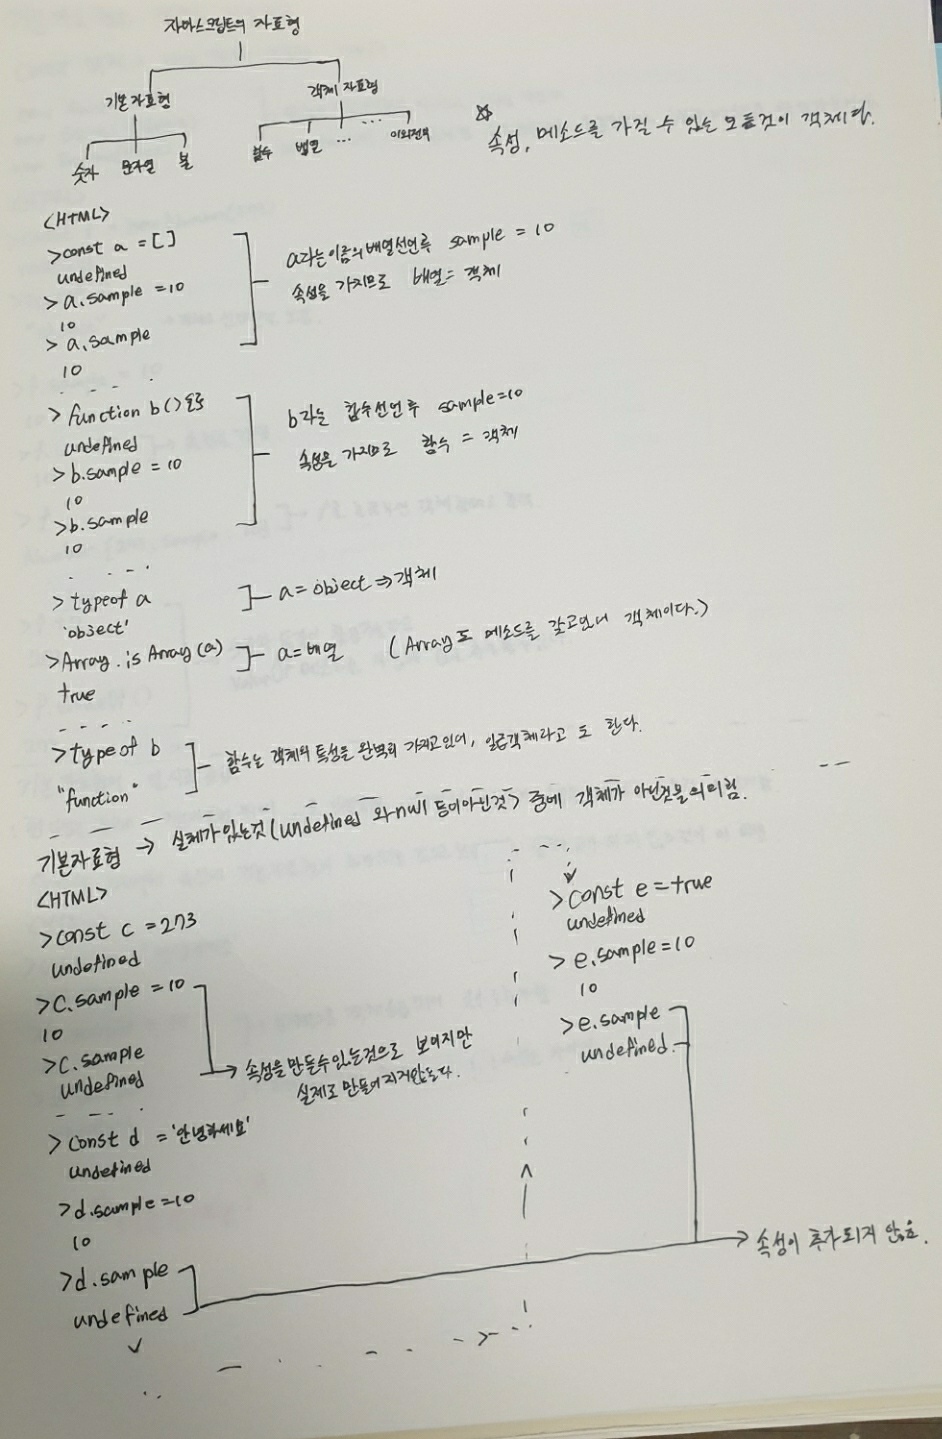 자바스크립트의 자료형
기본자료형
객체 자료형
숫자 문자열 불
함수 배열 ... ... 이외전부
☆ 속성, 메소드를 가질 수 있는 모든것이 객체다.
<HTML>
>const a = []
undefined
>a.sample = 10
10
> a.sample
10
a라는이름의배열선언후 sample = 10
속성을 가지므로 배열= 객체
> function b() {}
undefined
>b.sample = 10
10
>b.sample
10
b라는 함수선언후 sample=10
속성을 가지므로 함수 = 객체
> typeof a
'object'
a = object ⇒ 객체
>Array.isArray(a)
true
a = 배열 (Array도 메소드를 갖고있으니 객체이다.)
>typeof b
"function"
함수는 객체의 특성을 완벽히 가지고있어, 일급객체라고 도 한다.
기본자료형 → 실체가있는것(undefined 와 null 등이아닌것) 중에 객체가 아닌것을의미함.
<HTML>
>const c = 273
undefined
>C.sample = 10
10
>C.sample
undefined
→ 속성을만들수있는것으로 보이지만
실제로 만들어지지않는다.
>const d = '안녕하세요'
undefined
>d.sample=10
10
>d.sample
undefined
>const e = true
undefined
> e.sample=10
10
>e.sample
undefined
→ 속성이 추가되지 않음.